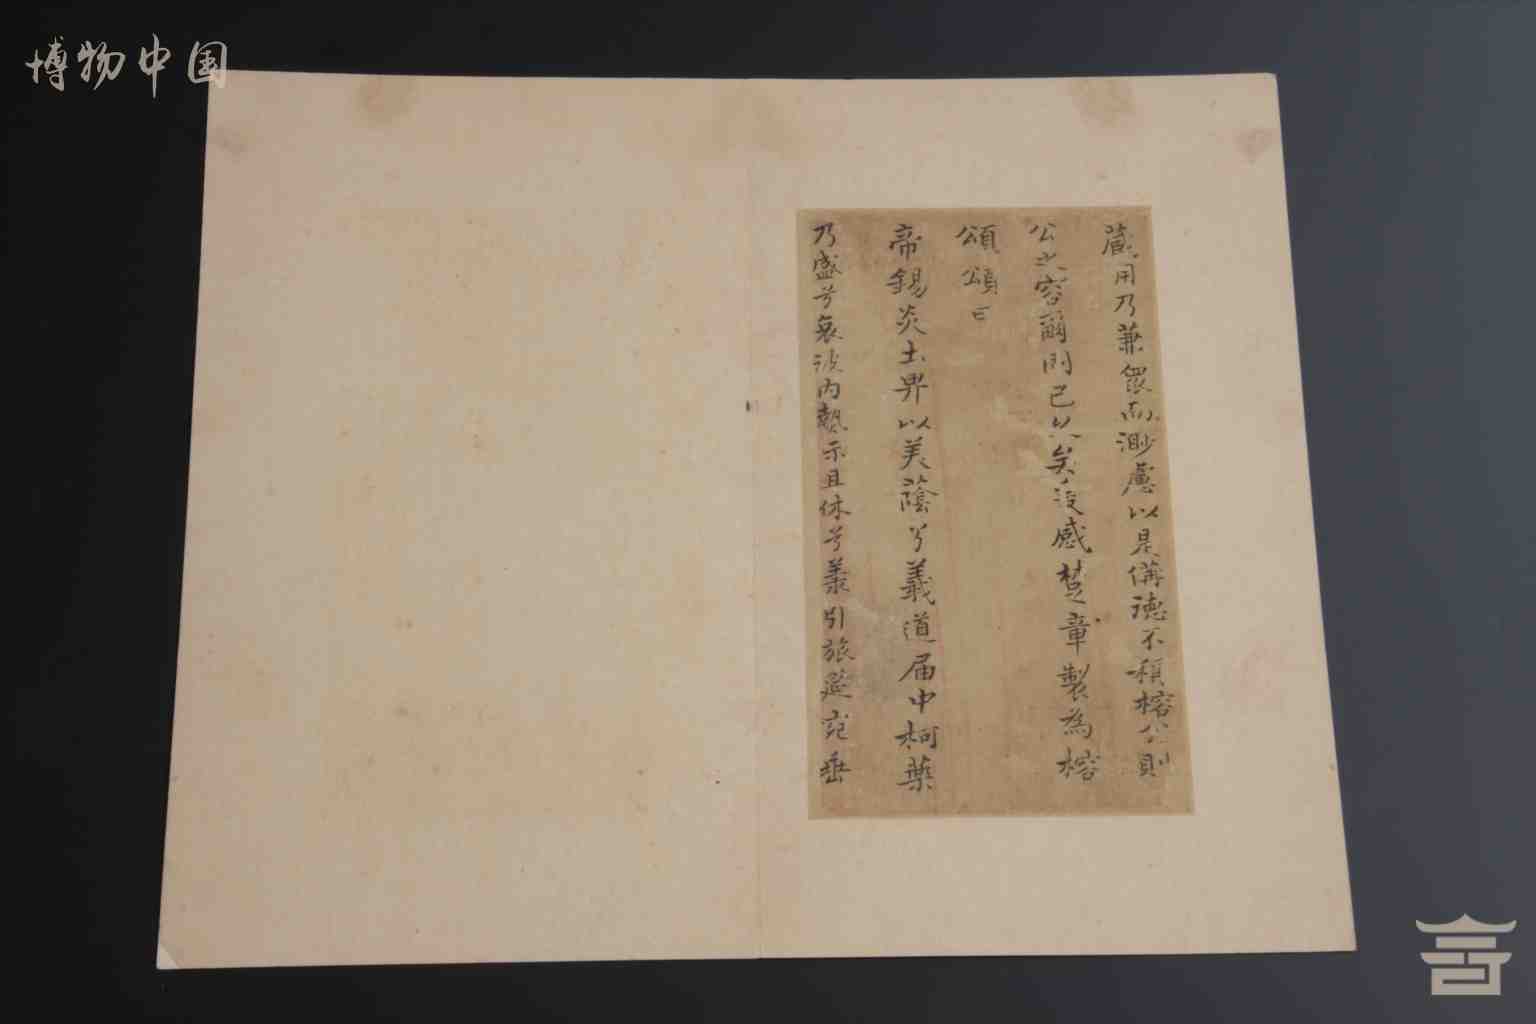 博物中国
藏用乃兼眾而渺慮以是備德不穎榕公則
公之容爾門已久矣後感楚章製為榕
頌頌曰
帝錫炎土畀以美蔭兮義道届中柯葉
乃盛兮哀彼內熱示且休兮義引旅遊窕垂